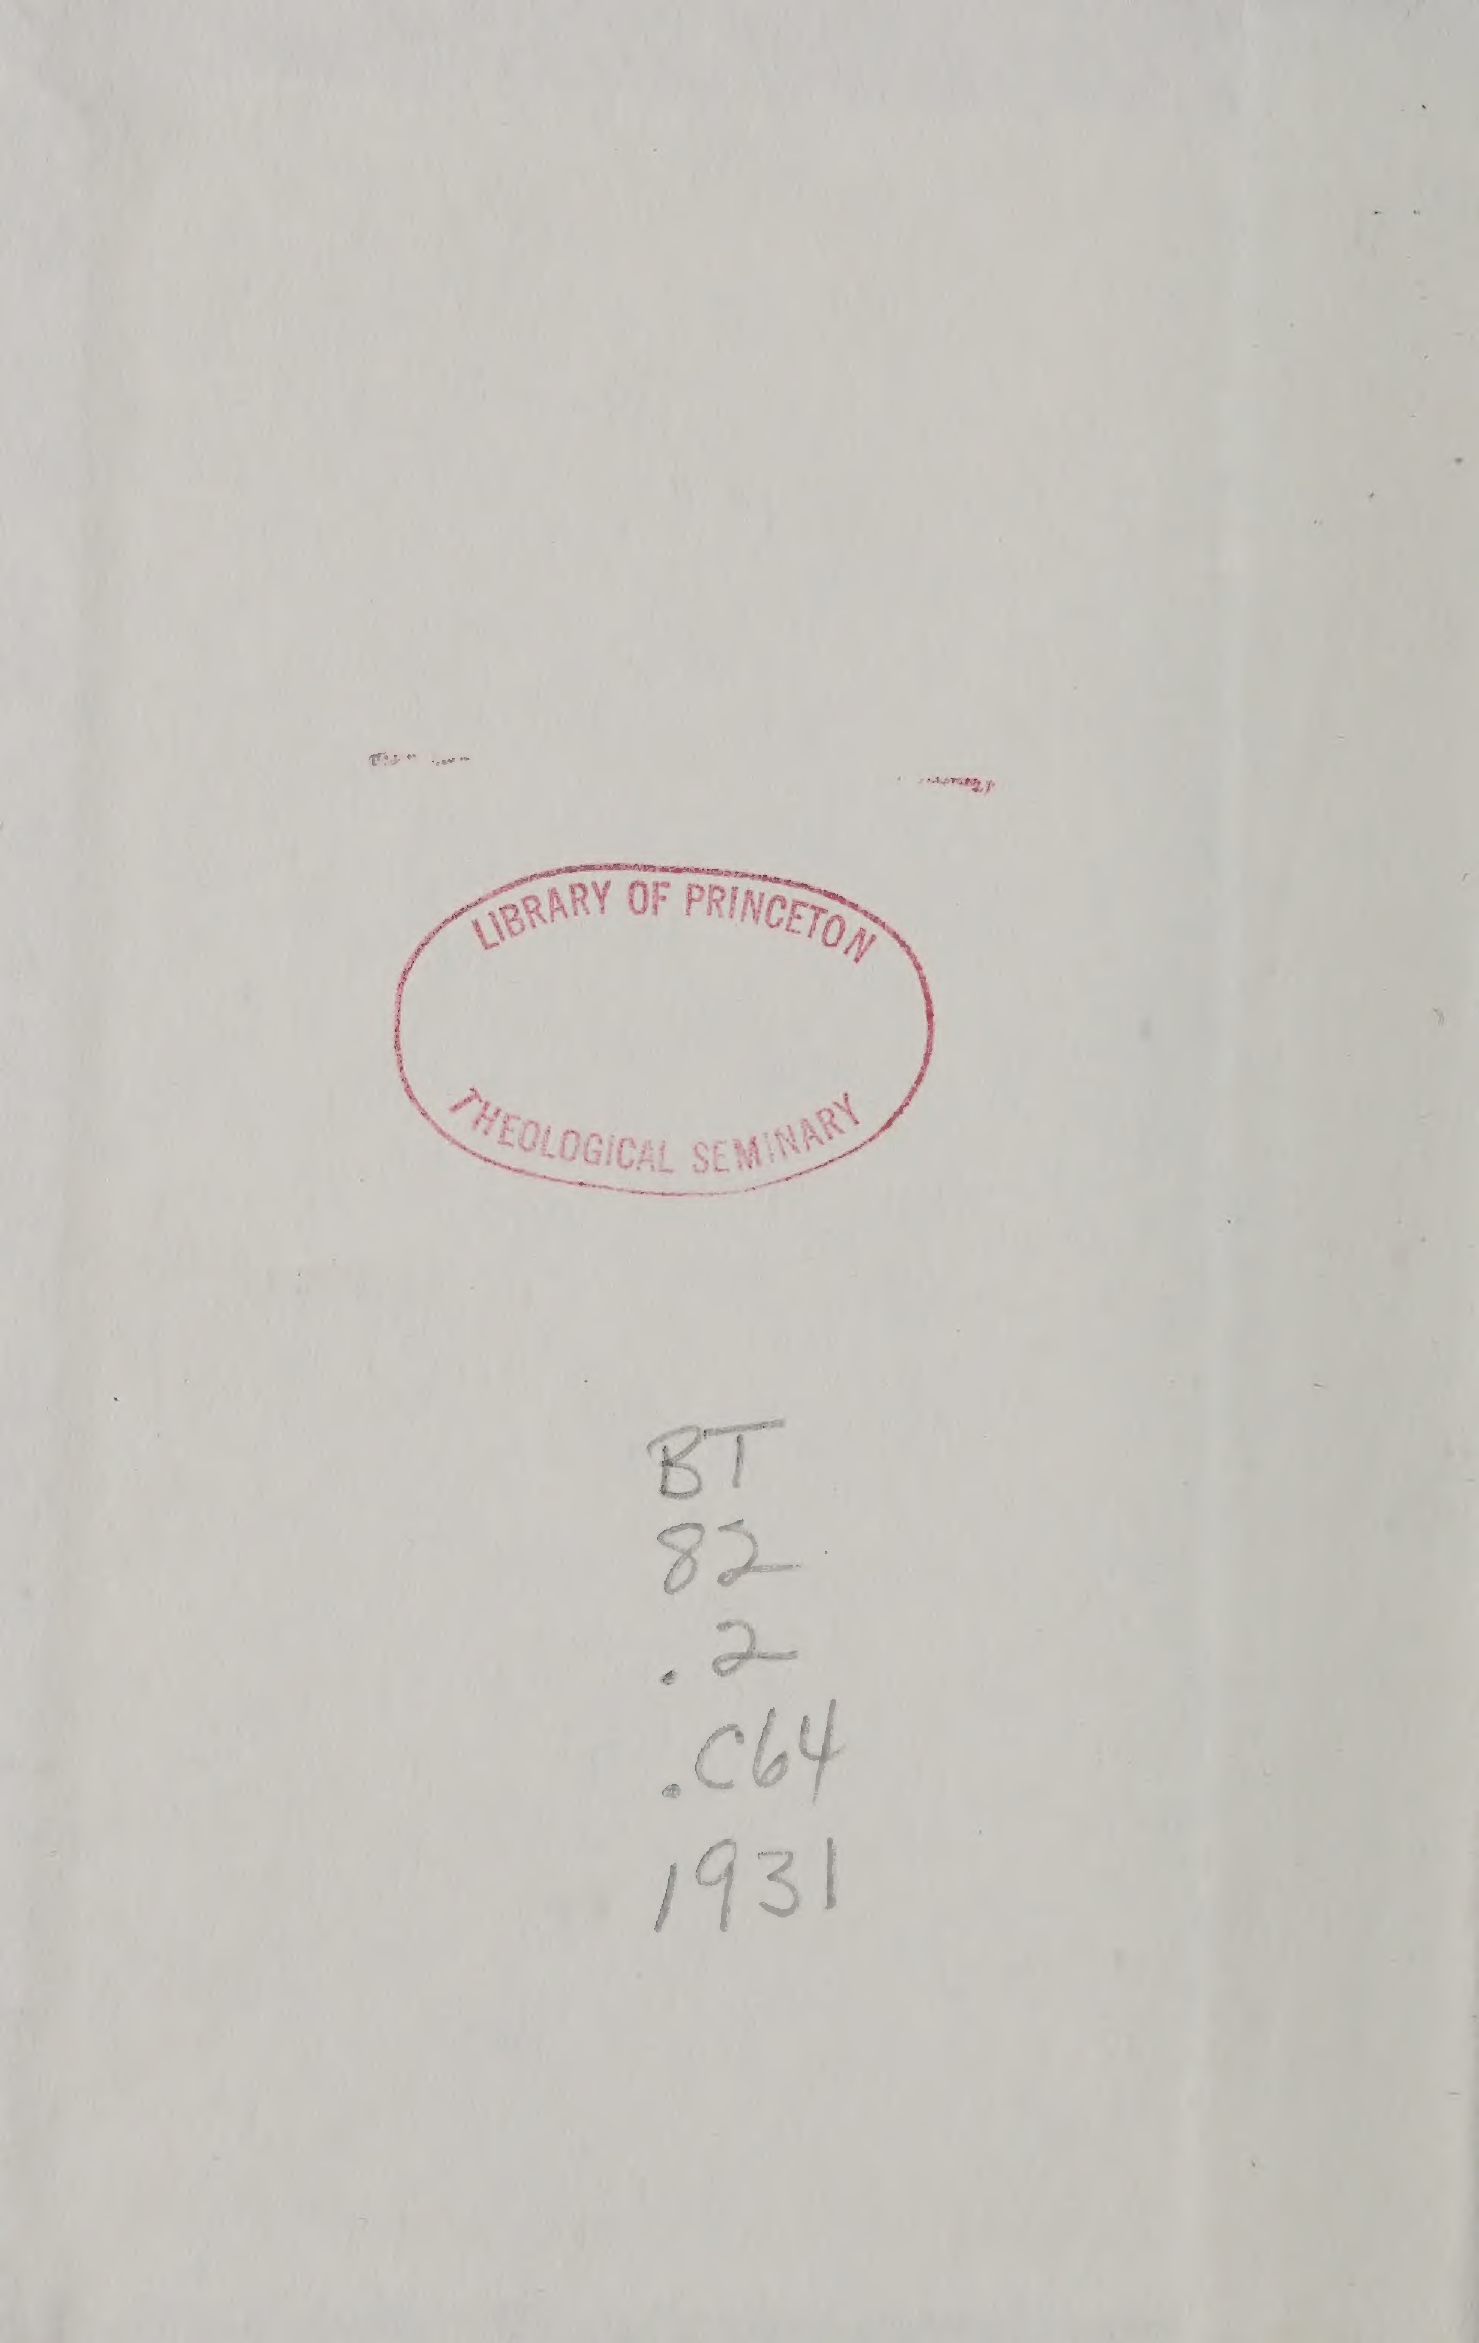 LIBRARY OF PRINCETON
THEOLOGICAL SEMINARY
BT
82
.2
.C64
1931